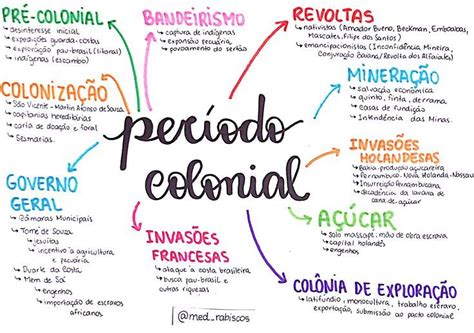 PRÉ-COLONIAL
↳ desinteresse inicial
↳ expedições guarda-costas
↳ exploração pau-brasil (litoral)
↳ indígenas (escambo)
BANDEIRISMO
↳ captura de indígenas
↳ expansão pecuária
↳ povoamento do sertão
REVOLTAS
↳ nativistas (Amador Bueno, Beckman, Emboabas,
Mascates, Filipe dos Santos)
↳ emancipacionistas (Inconfidência Mineira,
Conjuração Baiana / Revolta dos Alfaiates)
COLONIZAÇÃO
↳ São Vicente - Martim Afonso de Sousa
↳ capitanias hereditárias
↳ carta de doação e foral
↳ Sesmarias.
MINERAÇÃO
↳ salvação econômica
↳ quinto, finta, derrama
↳ casas de fundição
↳ Intendência das Minas.
período
colonial
INVASÕES
HOLANDESAS
↳ Bahia - produção açucareira
↳ Pernambuco - Nova Holanda - Nassau
↳ Insurreição Pernambucana
↳ decadência da lavoura de
cana-de açúcar
GOVERNO
GERAL
↳ Câmaras Municipais
↳ Tomé de Souza
↳ jesuítas
↳ incentivo à agricultura
e pecuária
↳ Duarte da Costa
↳ Mem de Sá
↳ engenhos
↳ importação de escravos
africanos
INVASÕES
FRANCESAS
↳ ataque à costa brasileira
↳ busca pau-brasil e
outras riquezas
AÇÚCAR
↳ solo massapé: mão de obra escrava
↳ capital holandês
↳ engenhos
COLÔNIA DE EXPLORAÇÃO
↳ latifúndio, monocultura, trabalho escravo,
exportação, submissão ao pacto colonial
@med_rabiscos